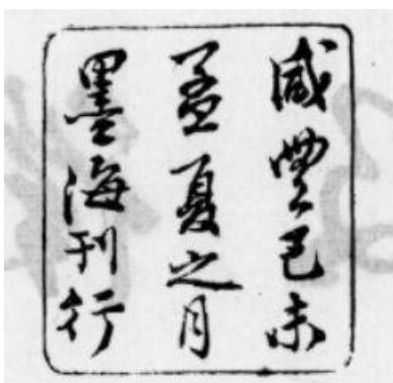 咸豐己未
孟夏之月
墨海刊行